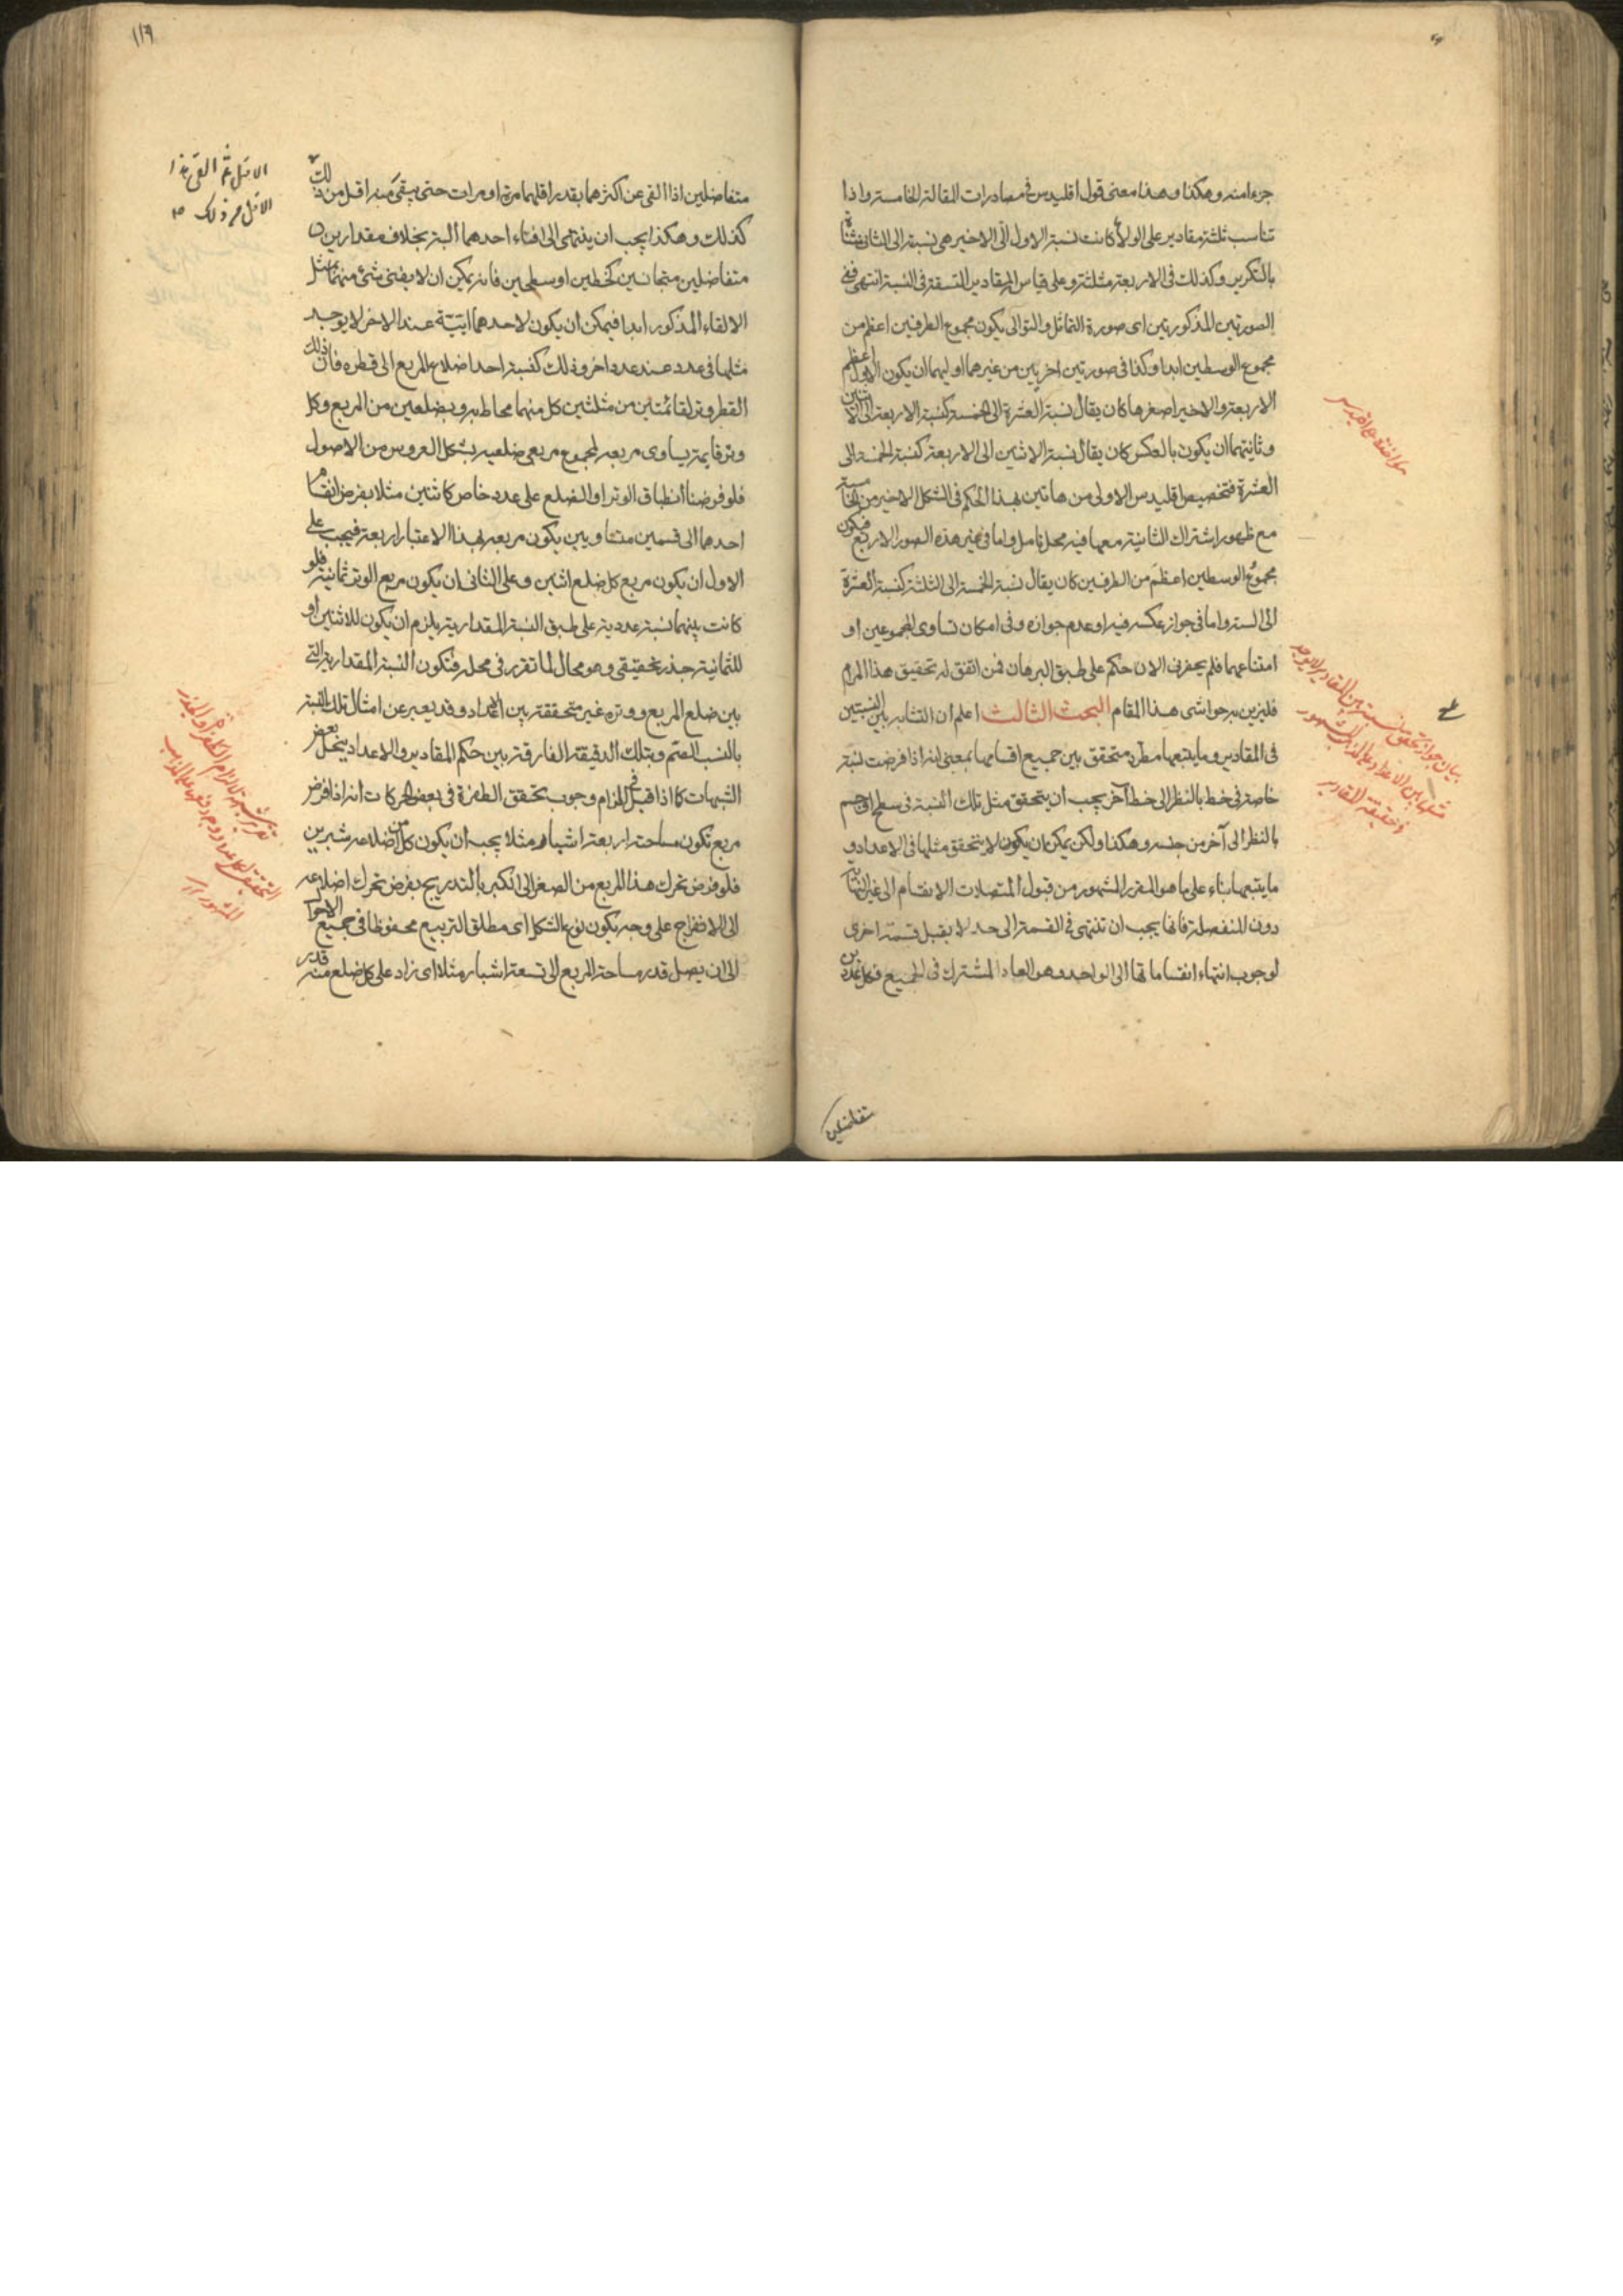 جزءا منه وهكذا وهذا معنى قول اقليدس في مصادرات المقالة الخامسة واذا
تناسب ثلثة مقادير على الولاء كانت نسبة الاول الى الاخير هي نسبته الى الثاني مثناة
بالتكرير وكذلك في الاربعة مثلثة وعلى قياس المقادير المتسقة في النسبة انتهى ففي
الصورتين المذكورتين اى صورة التماثل والتوالى يكون مجموع الطرفين اعظم من
مجموع الوسطين ابدا وكذا في صورتين اخريين من غيرهما اوليهما ان يكون الاول اعظم
الاربعة والاخير اصغرها كان يقال نسبة العشرة الى الخمسة كنسبة الاربعة الى الاثنين
وثانيتهما ان يكون بالعكس كان يقال نسبة الاثنين الى الاربعة كنسبة الخمسة الى
العشرة فتخصيص اقليدس الاولى من هاتين بهذا الحكم في الشكل الاخير من الخامسة
مع ظهور اشتراك الثانية معها فيه محل تامل واما في غير هذه الصور الاربع فيكون
مجموع الوسطين اعظم من الطرفين كان يقال نسبة الخمسة الى الثلثة كنسبة العشرة
الى الستة واما في جواز عكسه فيه او عدم جوازه وفي امكان تساوى المجموعين او
امتناعهما فلم يحضرني الان حكم على طبق البرهان فمن اتفق له تحقيق هذا المرام
فليزين به حواشى هذا المقام البحث الثالث اعلم ان التشابه بين النسبتين
في المقادير وما يتبعها مطرد متحقق بين جميع اقسامها بمعنى انه اذا فرضت نسبة
خاصة في خط بالنظر الى خط آخر يجب ان يتحقق مثل تلك النسبة في سطح او جسم
بالنظر الى آخر من جنسه وهكذا ولكن يمكن ان يكون لا يتحقق مثلها في الاعداد و
ما يتبعها بناء على ما هو المقرر المشهور من قبول المتصلات الانقسام الى غير النهاية
دون المنفصلة فانها يجب ان تنتهى في القسمة الى حد لا يقبل قسمة اخرى
لوجوب انتهاء انقساماتها الى الواحد وهو العاد المشترك في الجميع فكل عددين
متفاضلين
مؤاخذة على اقليدس
بيان جواز تحقق نسبة بين المقادير لا يوجد
مثلها بين الاعداد على المشهور
في حقيقة المقادير
١١٩
متفاضلين اذا القى عن اكثرهما بقدر اقلهما مرة او مرات حتى يبقى منه اقل من ذلك
كذلك وهكذا يجب ان ينتهى الى افناء احدهما البتة بخلاف مقدارين
متفاضلين متجانسين كخطين او سطحين فانه يمكن ان لا يفنى شئ منهما بمثل
الالقاء المذكور ابدا فيمكن ان يكون لاحدهما ايتية عند الاخر لا يوجد
مثلها في عدد عند عدد اخر وذلك كنسبة احد اضلاع المربع الى قطره فان ذلك
القطر وتر لقائمتين من مثلثين كل منهما محاط به وبضلعين من المربع وكل
وتر قايمة يساوى مربعه لمجموع مربعى ضلعيه بشكل العروس من الاصول
فلو فرضنا انطباق الوتر او الضلع على عدد خاص كاثنين مثلا بفرض انقسام
احدهما الى قسمين متساويين يكون مربعه بهذا الاعتبار اربعة فيجب على
الاول ان يكون مربع كل ضلع اثنين وعلى الثاني ان يكون مربع الوتر ثمانية فلو
كانت بينهما نسبة عددية على طبق النسبة المقدارية يلزم ان يكون للاثنين او
للثمانية جذر تحقيقى وهو محال لما تقرر في محله فتكون النسبة المقدارية التى
بين ضلع المربع ووتره غير متحققة بين الاعداد وقد يعبر عن امثال تلك النسبة
بالنسب الصم وبتلك الدقيقة الفارقة بين حكم المقادير والاعداد ينحل بعض
الشبهات كما اذا قيل في الزام وجوب تحقق الطفرة في بعض الحركات انه اذا فرض
مربع تكون مساحته اربعة اشبار مثلا يجب ان يكون كل من اضلاعه شبرين
فلو فرض تحرك هذا المربع من الصغر الى الكبر بالتدريج بفرض تحرك اضلاعه
الى الانفراج على وجه يكون نوع الشكل اى مطلق التربيع محفوظا في جميع الاحوال
الى ان يصل قدر مساحة المربع الى تسعة اشبار مثلا اى زاد على كل ضلع منه قدر
الاقل ثم القى هذا
الاقل من ذلك